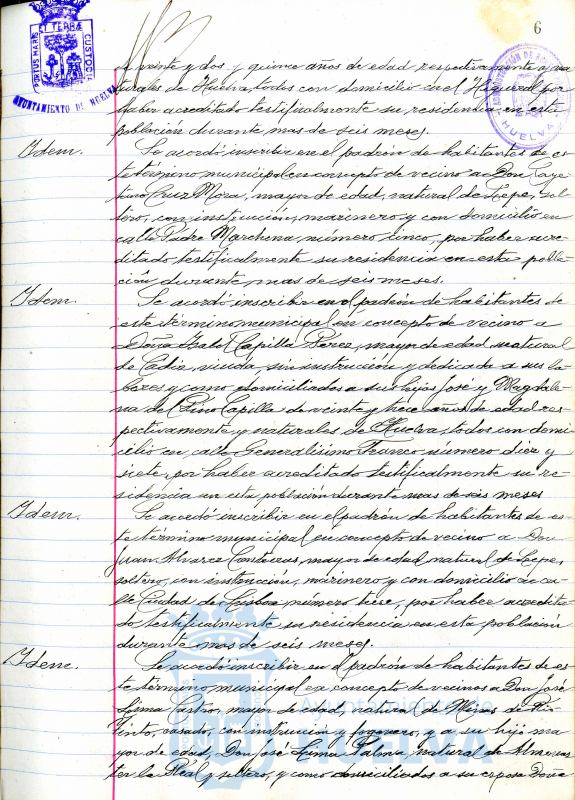 6
PORTUS MARIS ET TERRÆ CUSTODIA
AYUNTAMIENTO DE HUELVA
HUELVA
de veinte y dos y quince años de edad respectivamente y na-
turales de Huelva, todos con domicilio en el Higueral por
haber acreditado testificalmente su residencia en esta
población durante mas de seis meses.
Idem.
Se acordó inscribir en el padrón de habitantes de es-
te término municipal en concepto de vecino a Don Caye-
tano Cruz Mora, mayor de edad, natural de Lepe, sol-
tero, con instrucción, marinero y con domicilio en
calle Padre Marchena, número cinco, por haber acre-
ditado testificalmente su residencia en esta pobla-
ción durante mas de seis meses.
Idem.
Se acordó inscribir en el padrón de habitantes de
este término municipal en concepto de vecino a
Doña Isabel Capilla Pérez, mayor de edad natural
de Cádiz, viuda, sin instrucción y dedicada a sus la-
bores y como domiciliados a sus hijos José y Magdale-
na de Pino Capilla de veinte y trece años de edad res-
pectivamente y naturales de Huelva todos con domi-
cilio en calle Generalísimo Franco número diez y
siete, por haber acreditado testificalmente su re-
sidencia en esta población durante mas de seis meses
Idem.
Se acordó inscribir en el padrón de habitantes de es-
te término municipal en concepto de vecino a Don
Juan Alvarez Contreras, mayor de edad natural de Lepe,
soltero, con instrucción, marinero y con domicilio de ca-
lle Ciudad de Lisboa número trece, por haber acredita-
do testificalmente su residencia en esta población
durante mas de seis meses.
Idem.
Se acordó inscribir en el padrón de habitantes de es-
te término municipal en concepto de vecinos a Don José
mayor de edad, natural de Minas de Rio-
tinto, casado, con instrucción y fogonero, y a su hijo ma-
yor de edad, Don José natural de Almonas-
ter la Real y soltero, y como domiciliados a su esposa Doña
Ayuntamiento de
HUELVA